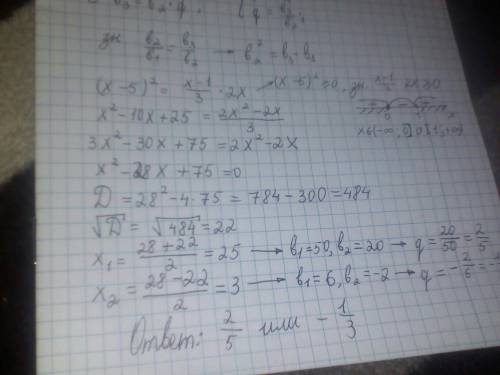 b₂ = b₁·q,
зн. b₂/b₁ = b₃/b₂ → b₂² = b₃·b₁
(x-5)² = (x-1)/3 · 2x → (x-5)² ≥ 0, зн. (x-1)/3 · 2x ≥ 0
x² - 10x + 25 = (2x² - 2x)/3
x∈(-∞, 0]∪[1, +∞)
3x² - 30x + 75 = 2x² - 2x
x² - 28x + 75 = 0
D = 28² - 4·75 = 784 - 300 = 484
√D = √484 = 22
x₁ = (28+22)/2 = 25 → b₁=50, b₂=20 → q = 20/50 = 2/5
x₂ = (28-22)/2 = 3 → b₁=6, b₂=-2 → q = -2/6 =
Ответ: 2/5 или -1/3